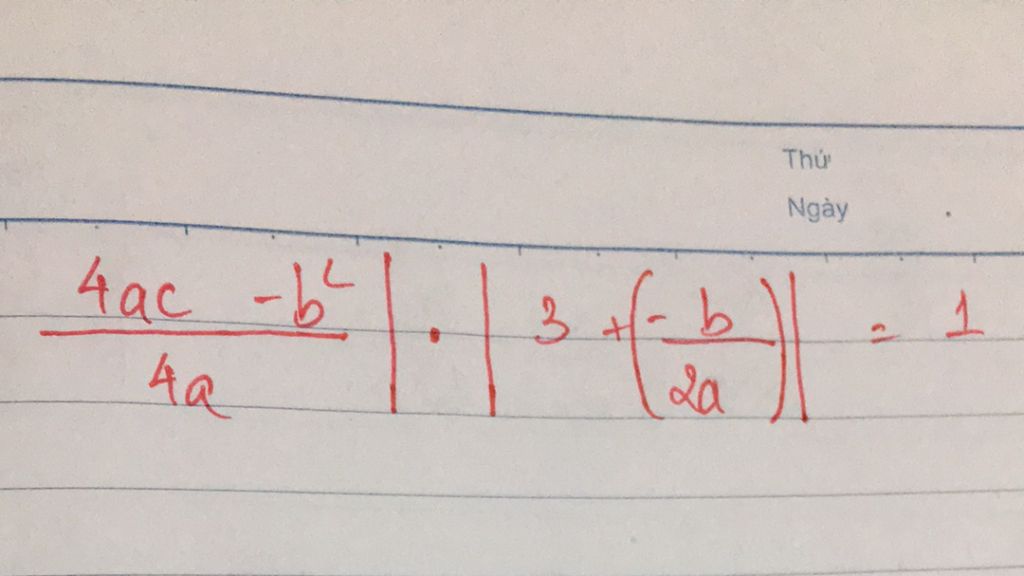 Thứ
Ngày
\frac{4ac - b^2}{4a} | . | 3 + (-\frac{b}{2a}) | = 1